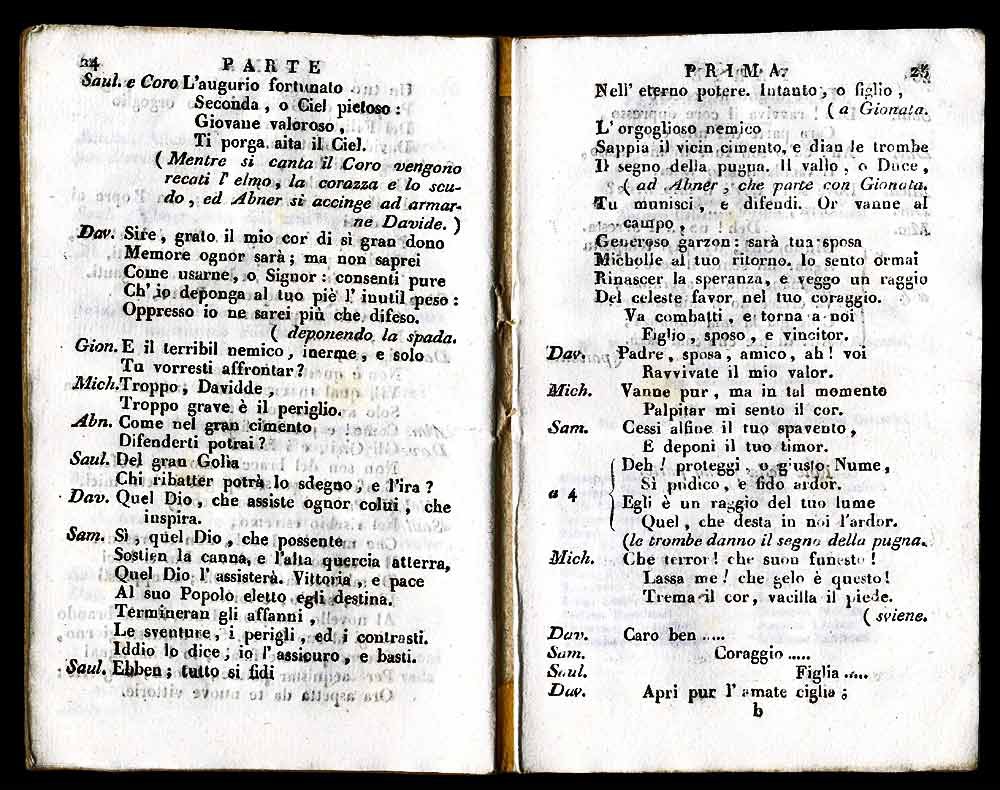 24 PARTE
Saul. e Coro L'augurio fortunato
Seconda, o Ciel pietoso:
Giovane valoroso,
Ti porga aita il Ciel.
( Mentre si canta il Coro vengono
recati l' elmo, la corazza e lo scu-
do, ed Abner si accinge ad armar-
ne Davide. )
Dav. Sire, grato il mio cor di sì gran dono
Memore ognor sarà; ma non saprei
Come usarne, o Signor: consenti pure
Ch' io deponga al tuo piè l' inutil peso:
Oppresso io ne sarei più che difeso.
( deponendo la spada.
Gion. E il terribil nemico, inerme, e solo
Tu vorresti affrontar?
Mich. Troppo, Davidde,
Troppo grave è il periglio.
Abn. Come nel gran cimento
Difenderti potrai?
Saul. Del gran Golia
Chi ribatter potrà lo sdegno, e l'ira?
Dav. Quel Dio, che assiste ognor colui, che
inspira.
Sam. Sì, quel Dio, che possente
Sostien la canna, e l'alta quercia atterra,
Quel Dio l' assisterà. Vittoria, e pace
Al suo Popolo eletto egli destina.
Termineran gli affanni,
Le sventure, i perigli, ed i contrasti.
Iddio lo dice; io l' assicuro, e basti.
Saul. Ebben; tutto si fidi
PRIMA. 25
Nell' eterno potere. Intanto, o figlio,
( a Gionata.
L' orgoglioso nemico
Sappia il vicin cimento, e dian le trombe
Il segno della pugna. Il vallo, o Duce,
( ad Abner, che parte con Gionata.
Tu munisci, e difendi. Or vanne al
campo,
Generoso garzon: sarà tua sposa
Micholle al tuo ritorno. Io sento ormai
Rinascer la speranza, e veggo un raggio
Del celeste favor nel tuo coraggio.
Va combatti, e torna a noi
Figlio, sposo, e vincitor.
Dav. Padre, sposa, amico, ah! voi
Ravvivate il mio valor.
Mich. Vanne pur, ma in tal momento
Palpitar mi sento il cor.
Sam. Cessi alfine il tuo spavento,
E deponi il tuo timor.
Deh! proteggi, o giusto Nume,
Sì pudico, e fido ardor.
a 4 Egli è un raggio del tuo lume
Quel, che desta in noi l'ardor.
(le trombe danno il segno della pugna.
Mich. Che terror! che suon funesto!
Lassa me! che gelo è questo!
Trema il cor, vacilla il piede.
( sviene.
Dav. Caro ben .....
Sam. Coraggio .....
Saul. Figlia .....
Dav. Apri pur l' amate ciglia;
b